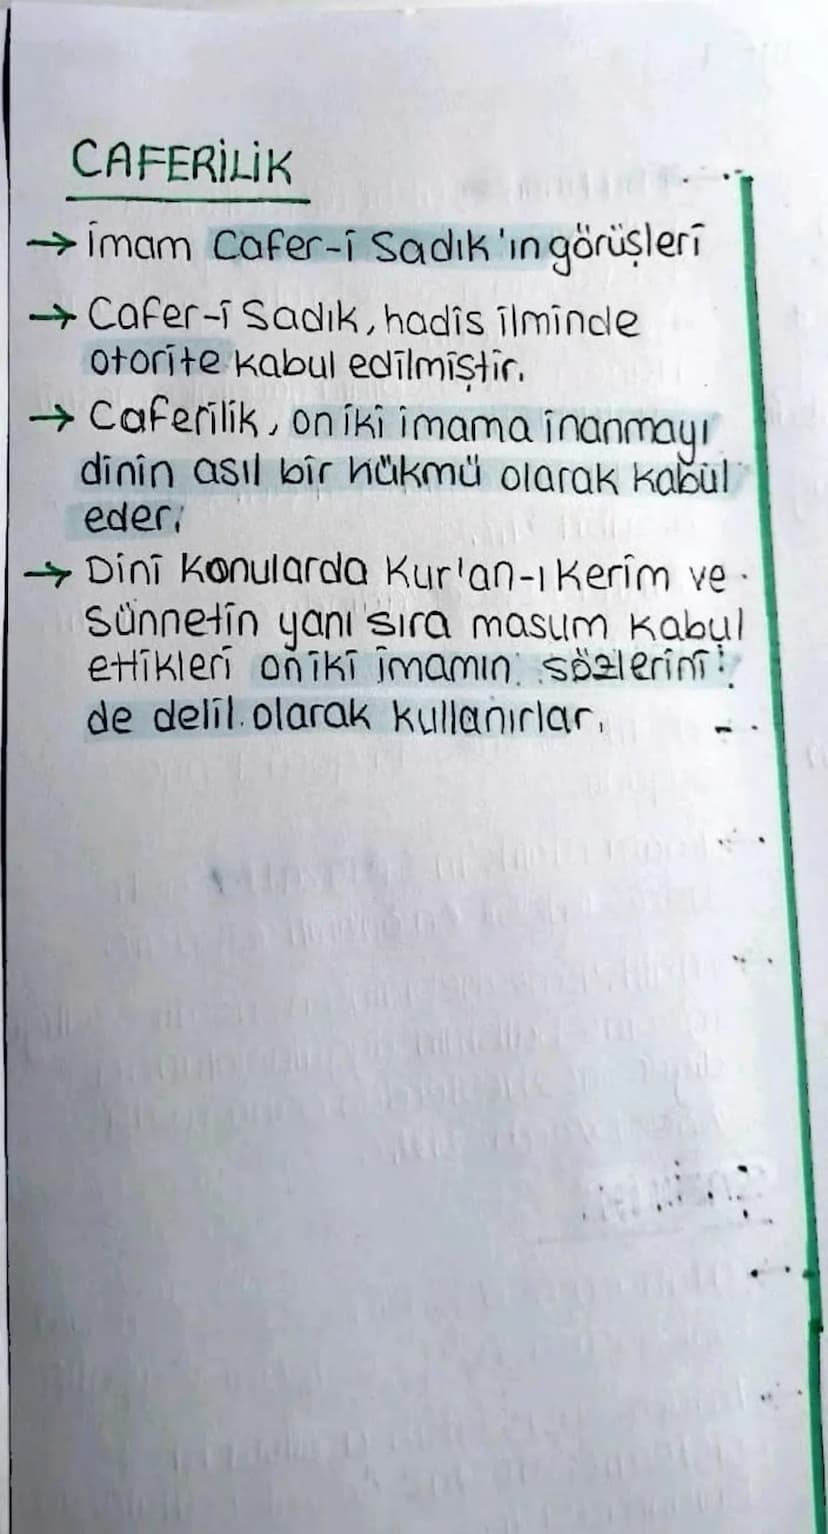 CAFERİLİK
→ İmam Cafer-i Sadık'ın görüşleri
→ Cafer-i Sadık, hadis ilminde
otorite kabul edilmiştir.
→ Caferilik, on iki imama inanmayı
dinin asıl bir hükmü olarak kabül
eder.
→ Dini konularda Kur'an-ı Kerim ve
Sünnetin yanı sıra masum kabul
ettikleri on iki imamın sözlerini
de delil olarak kullanırlar.